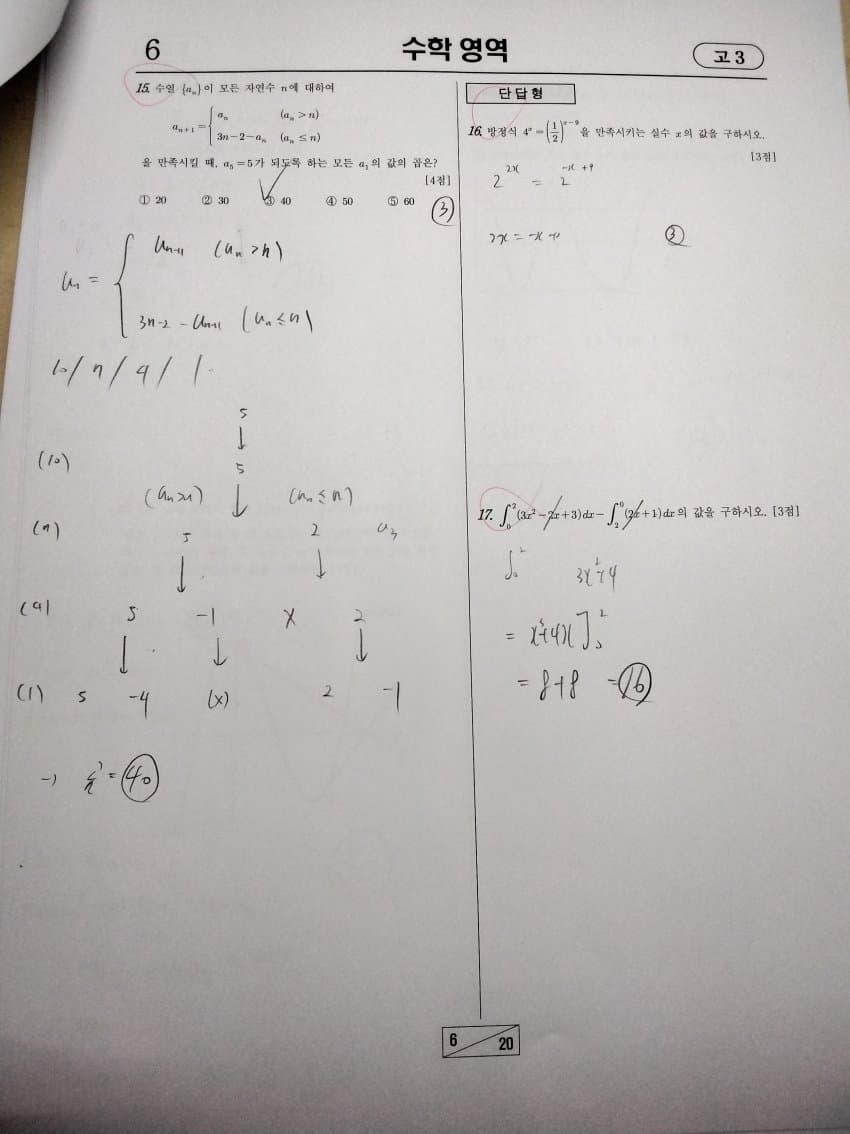 6
수학 영역
고 3
15. 수열 {aₙ}이 모든 자연수 n에 대하여
aₙ₊₁ = { aₙ (aₙ > n)
3n-2-aₙ (aₙ ≤ n)
을 만족시킬 때, a₅=5가 되도록 하는 모든 a₁의 값의 곱은?
[4점]
① 20 ② 30 ③ 40 ④ 50 ⑤ 60
③
aₙ = { aₙ₊₁ (aₙ > n)
3n-2 - aₙ₊₁ (aₙ ≤ n)
5
↓
5
(aₙ>n) ↓ (aₙ ≤ n)
5 2 a₃
↓ ↓
5 -1 X 2
↓ ↓ ↓
(1) 5 -4 (x) 2 -1
40
단답형
16. 방정식 4ˣ = (1/2)ˣ⁻⁹ 을 만족시키는 실수 x의 값을 구하시오.
[3점]
2²ˣ = 2⁻ˣ⁺⁹
③
17. ∫₀² (3x²-2x+3)dx - ∫₂⁰ (2x+1)dx의 값을 구하시오. [3점]
∫₀² 3x²+4
= x³+4x]₀²
= 8+8 = 16
6 / 20